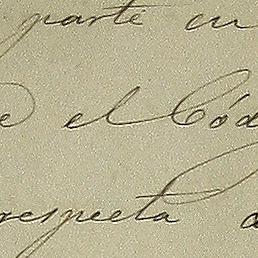 parte en
el Cód
respecta